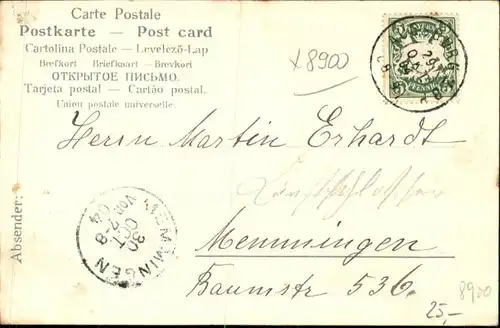 Carte Postale
Postkarte — Post card
Cartolina Postale — Levelező-Lap
Brefkort — Briefkaart — Brevkort
ОТКРЫТОЕ ПИСЬМО.
Tarjeta postal — Cartão postal.
Union postale universelle.
x8900
29
Herrn Martin Erhardt
Absender:
MEMMINGEN
30
OCT.
Vor. 7-8
04
Memmingen
Baumstr 536.
8900
25,-